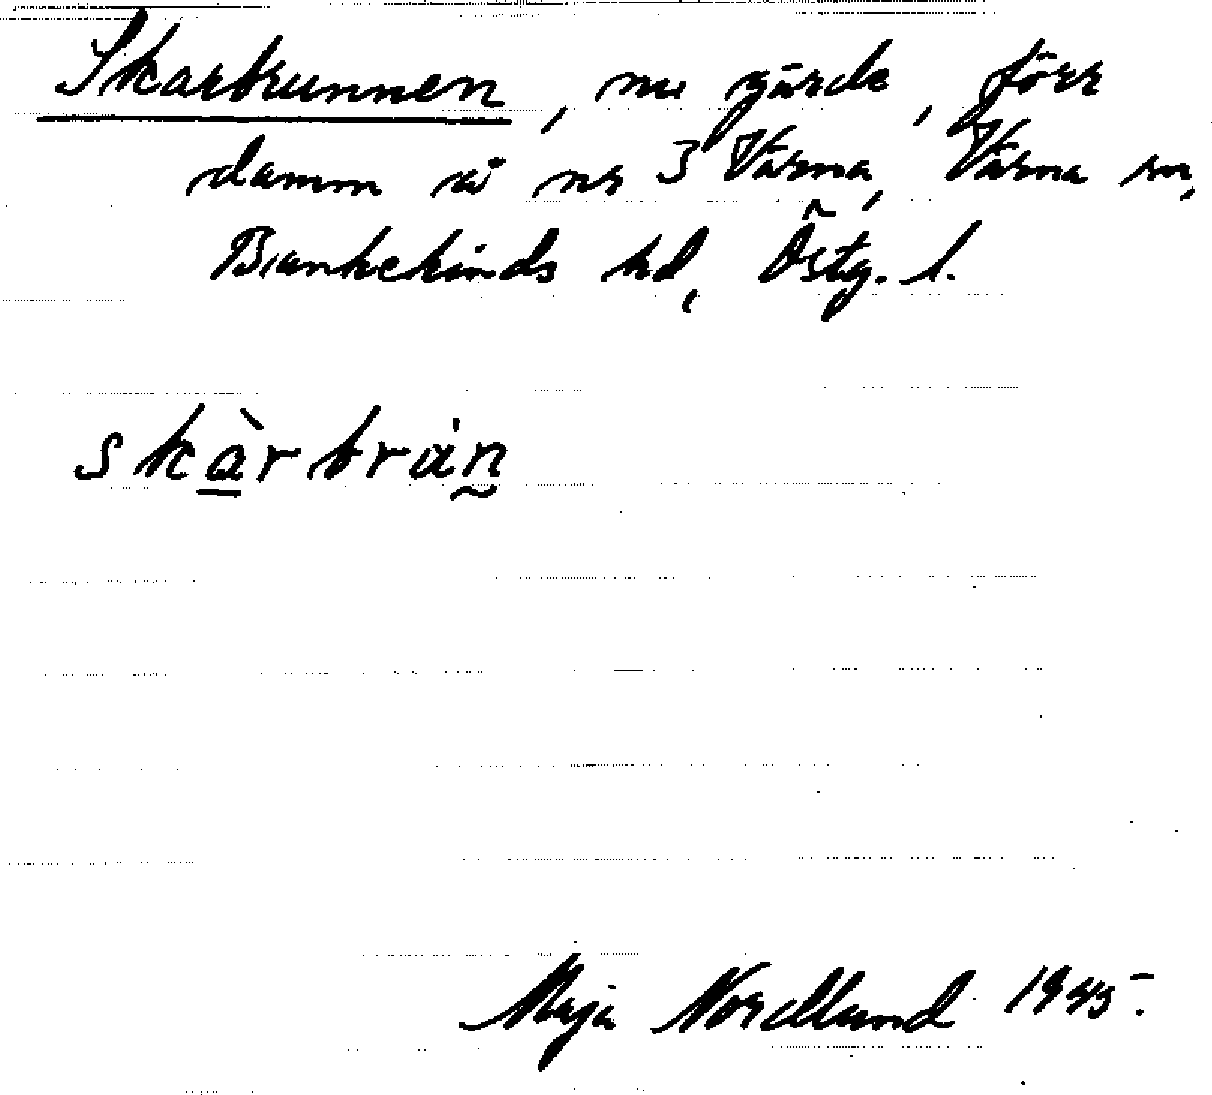 Skarbrunnen, nu gärde, förr
damm å nr 3 Värna, Värna sn,
Bankekinds hd, Östg. l.
skàrbrán
Maja Nordlund 1945.